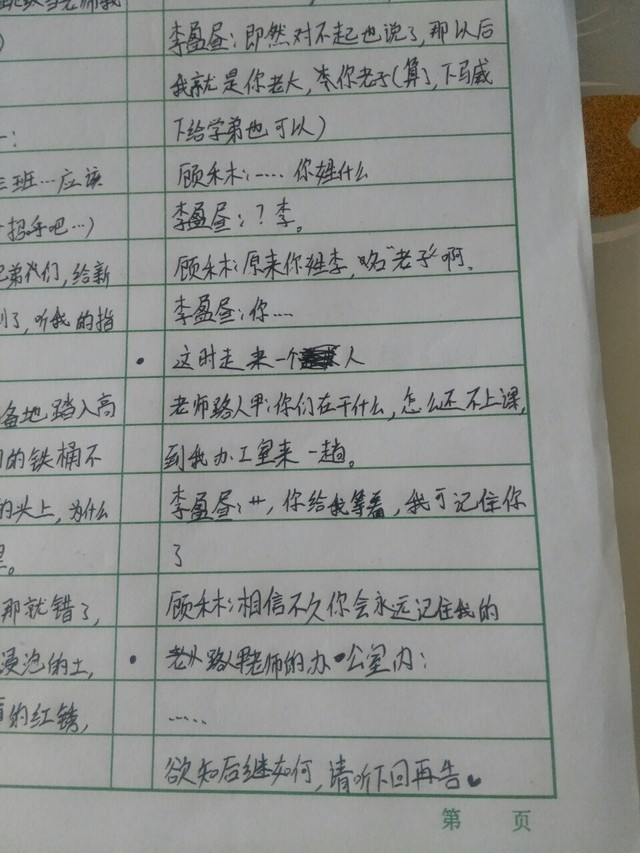 )
一:
三班…应该
招手吧…)
兄弟们,给新
到了,听我的指
备地踏入高
的铁桶不
的头上,为什么
里。
那就错了,
浸泡的土,
的红锈,
李盈昼:即然对不起也说了,那以后
我就是你老大,本你老子(算了,下马威
下给学弟也可以)
顾禾木:……你姓什么
李盈昼:?李。
顾禾木:原来你姓李,名“老子”啊。
李盈昼:你……
·这时走来一个人
老师路人甲:你们在干什么,怎么还不上课,
到我办工室来一趟。
李盈昼:艹,你给我等着,我可记住你
了
顾禾木:相信不久你会永远记住我的
·路人甲老师的办公室内:
……
欲知后继如何,请听下回再告
第 页